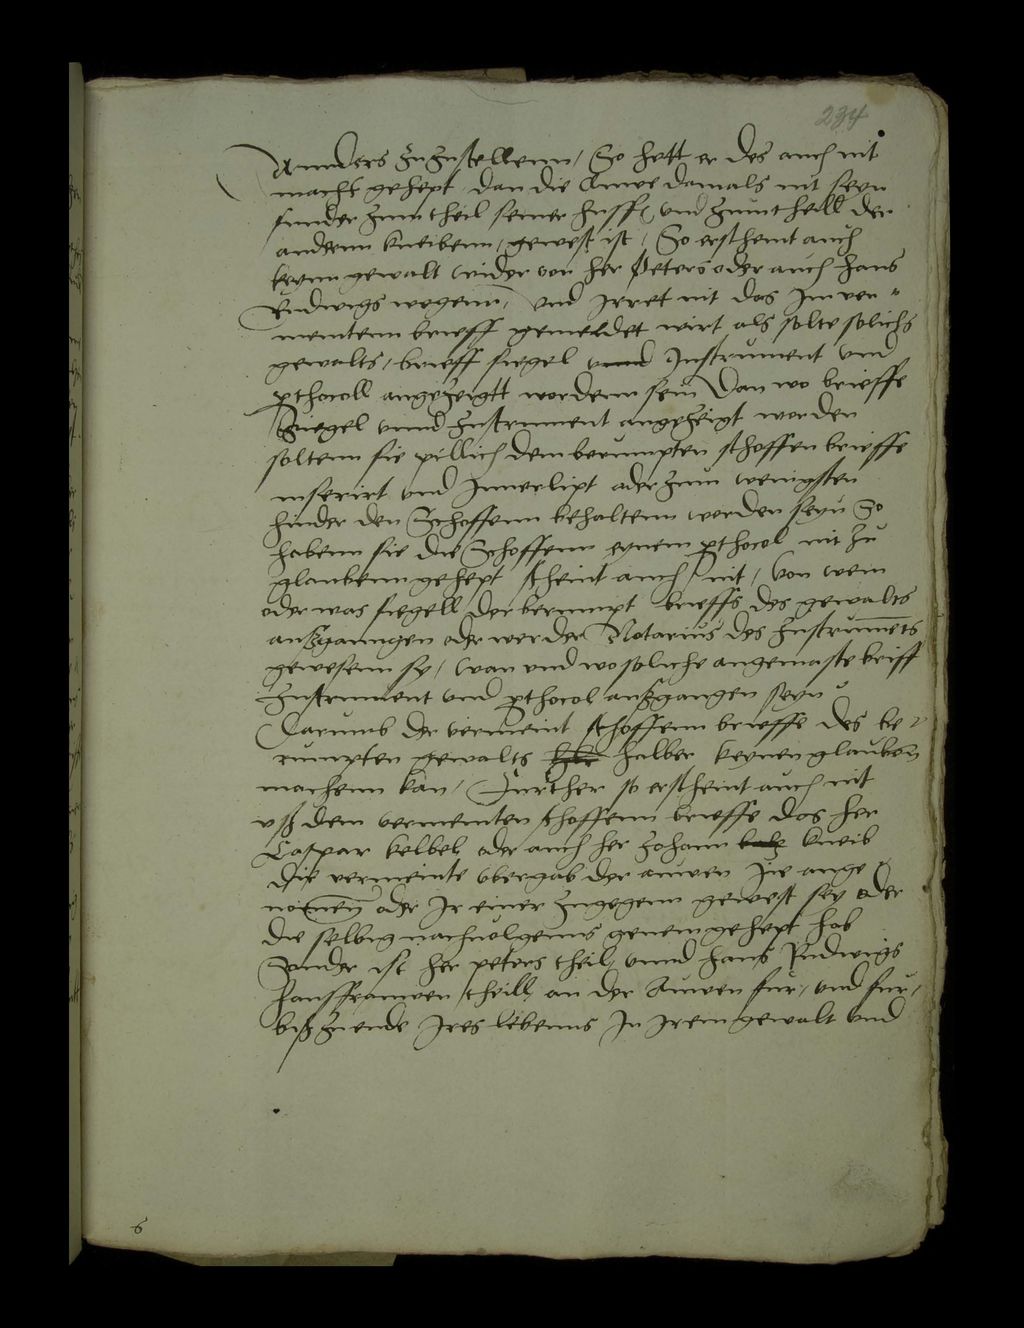 234
Annders zuzustellenn / So hett er des auch nit
macht gehept, dan die Auwe damals nit seyn
sunder zum theil seiner husf(rau) vnd zum theill der
andernn kneibenn / gewest ist / So erscheint auch
keynn gewalt wider von her Peters oder auch Hans
Ludwigs wegenn / vnd Irret nit das Im ver=
mentenn brieff gemeldet wirt als solte solichs
gewalts / brieff siegel vnnd Instrument vnd
pthocoll angezeigtt wordenn sein Dan wo brieffe
Siegel vnnd Instrument angezeigt worden
soltenn sie pillich dem berumpten schoffen brieffe
inserirt vnd Inuerlipt oder zum wenigsten
hinder den Schoffenn behaltenn worden seyn So
habenn sie die Schoffenn eynem pthocol nit zu
glaubenn gehept scheint auch nit / von wem
oder was siegell der berumpt brieffs des gewalts
außganngen oder wer der Notarius des Instruments
gewesenn sy / wan vnd wo soliche angemaste briff
Instrument vnd pthocol außgangen seyn
Darumb der vermeint schoffenn brieffe des be=
rumpten gewalts halber keynen glauben
machenn kan / Further so erscheint auch nit
vß dem vermeinten schoffenn brieffe das her
Caspar kelbel oder auch her Johann kneib
die vermeinte vbergab der auwen Ine ange=
nomen oder Ir einer zugegenn gewest sey oder
die selbig nachuolgenns genem gehept hab
Sonder ist her peters theil vnnd Hans Ludwigs
haußfrauwen theill an der Auwen fur / vnd fur /
biß zu ende Ires lebenns In Irem gewalt vnd
6